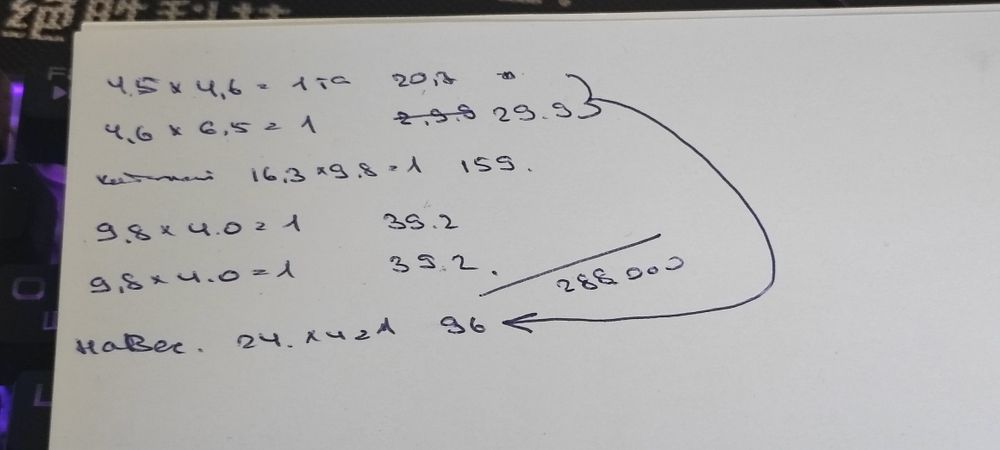 4,5 × 4,6 = 1 20,7
4,6 × 6,5 = 1 2,9.9 29.9
16,3 × 9.8 = 1 159.
9.8 × 4.0 = 1 39.2
9,8 × 4.0 = 1 39.2.
288.000
НаВес. 24. × 4 = 1 96